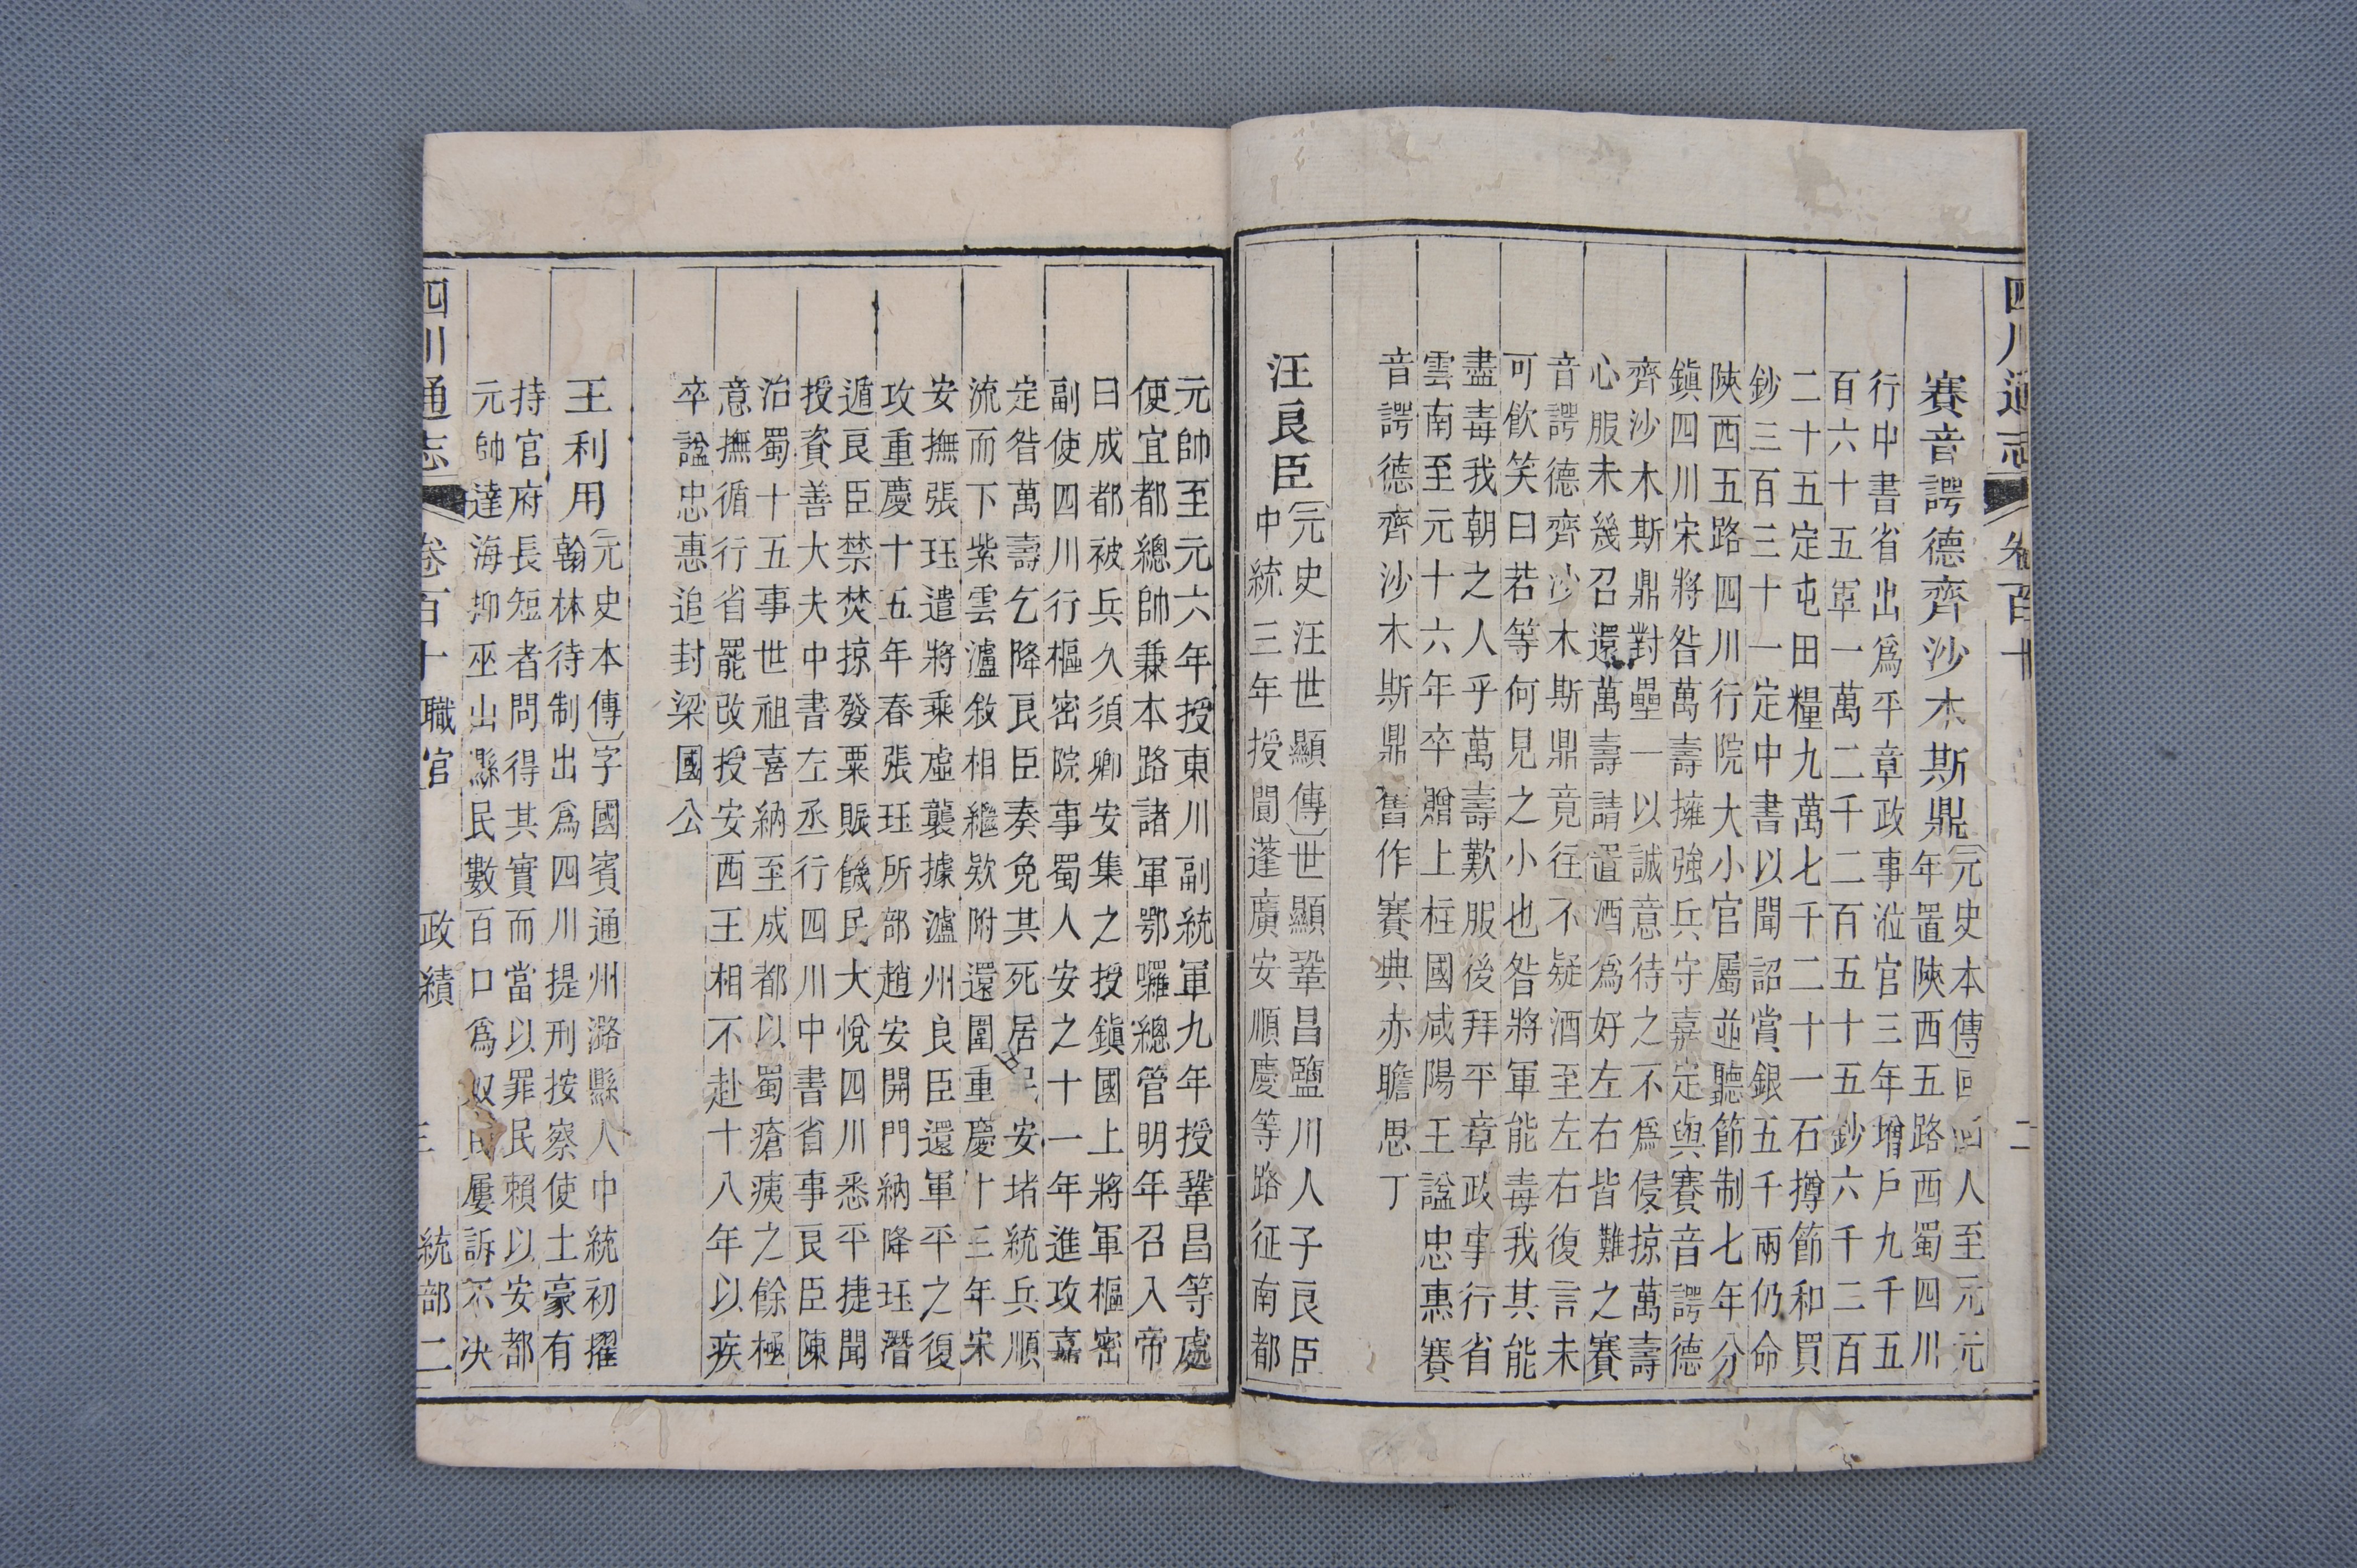 四川通志 卷百十 二
賽音諤德齊沙木斯鼎〔元史本傳〕回回人至元元
年置陝西五路西蜀四川
行中書省出爲平章政事涖官三年增戶九千五
百六十五軍一萬二千二百五十五鈔六千二百
二十五定屯田糧九萬七千二十一石撙節和買
鈔三百三十一定中書以聞詔賞銀五千兩仍命
陝西五路四川行院大小官屬並聽節制七年分
鎭四川宋將昝萬壽擁強兵守嘉定與賽音諤德
齊沙木斯鼎對壘一以誠意待之不爲侵掠萬壽
心服未幾召還萬壽請置酒爲好左右皆難之賽
音諤德齊沙木斯鼎竟往不疑酒至左右復言未
可飲笑曰若等何見之小也昝將軍能毒我其能
盡毒我朝之人乎萬壽歎服後拜平章政事行省
雲南至元十六年卒贈上柱國咸陽王諡忠惠賽
音諤德齊沙木斯鼎舊作賽典赤瞻思丁
汪良臣〔元史汪世顯傳〕世顯鞏昌鹽川人子良臣
中統三年授閬蓬廣安順慶等路征南都
元帥至元六年授東川副統軍九年授鞏昌等處
便宜都總帥兼本路諸軍鄂囉總管明年召入帝
曰成都被兵久須卿安集之授鎭國上將軍樞密
副使四川行樞密院事蜀人安之十一年進攻嘉
定昝萬壽乞降良臣奏免其死居民安堵統兵順
流而下紫雲瀘敘相繼欵附還圍重慶十三年宋
安撫張珏遣將乘虛襲據瀘州良臣還軍平之復
攻重慶十五年春張珏所部趙安開門納降珏潛
遁良臣禁焚掠發粟賑饑民大悅四川悉平捷聞
授資善大夫中書左丞行四川中書省事良臣陳
治蜀十五事世祖喜納至成都以蜀瘡痍之餘極
意撫循行省罷改授安西王相不赴十八年以疾
卒諡忠惠追封梁國公
王利用〔元史本傳〕字國賓通州潞縣人中統初擢
翰林待制出爲四川提刑按察使土豪有
持官府長短者問得其實而當以罪民賴以安都
元帥達海抑巫山縣民數百口爲奴民屢訴不决
四川通志 卷百十 職官 政績 三 統部二